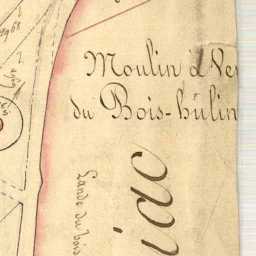 Moulin à Ve
du Bois-hulin
Lande du bois
iac